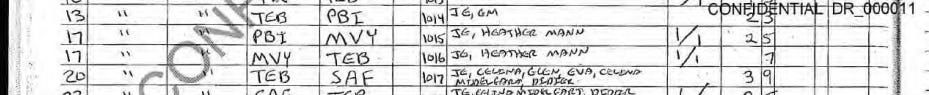 CONFIDENTIAL DR_000011
13 " " TEB PBI 1014 JE, GM 23
17 " " PBI MVY 1015 JE, HEATHER MANN 1/1 25
17 " " MVY TEB 1016 JE, HEATHER MANN 1/1 7
20 " " TEB SAF 1017 JE, CELINA, GLEN, EVA, CELINA MIDELFART, DIDIER 39